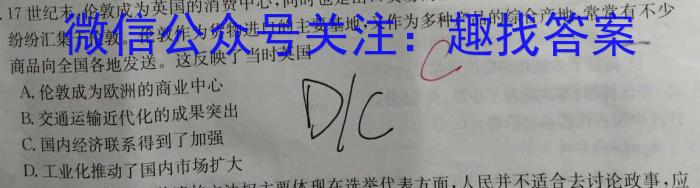 17世纪末,伦敦成为英国的消费中心,同时也是
纷纷汇集 伦敦。伦敦作为货物进口的主要基地,又作为多种产品的综合产地,常常有不少
微信公众号关注:趣找答案
商品向全国各地发送。这反映了当时英国
A.伦敦成为欧洲的商业中心
B.交通运输近代化的成果突出
C.国内经济联系得到了加强
D.工业化推动了国内市场扩大
D/C
C
主要体现在选举代表方面,人民并不适合去讨论政事,应